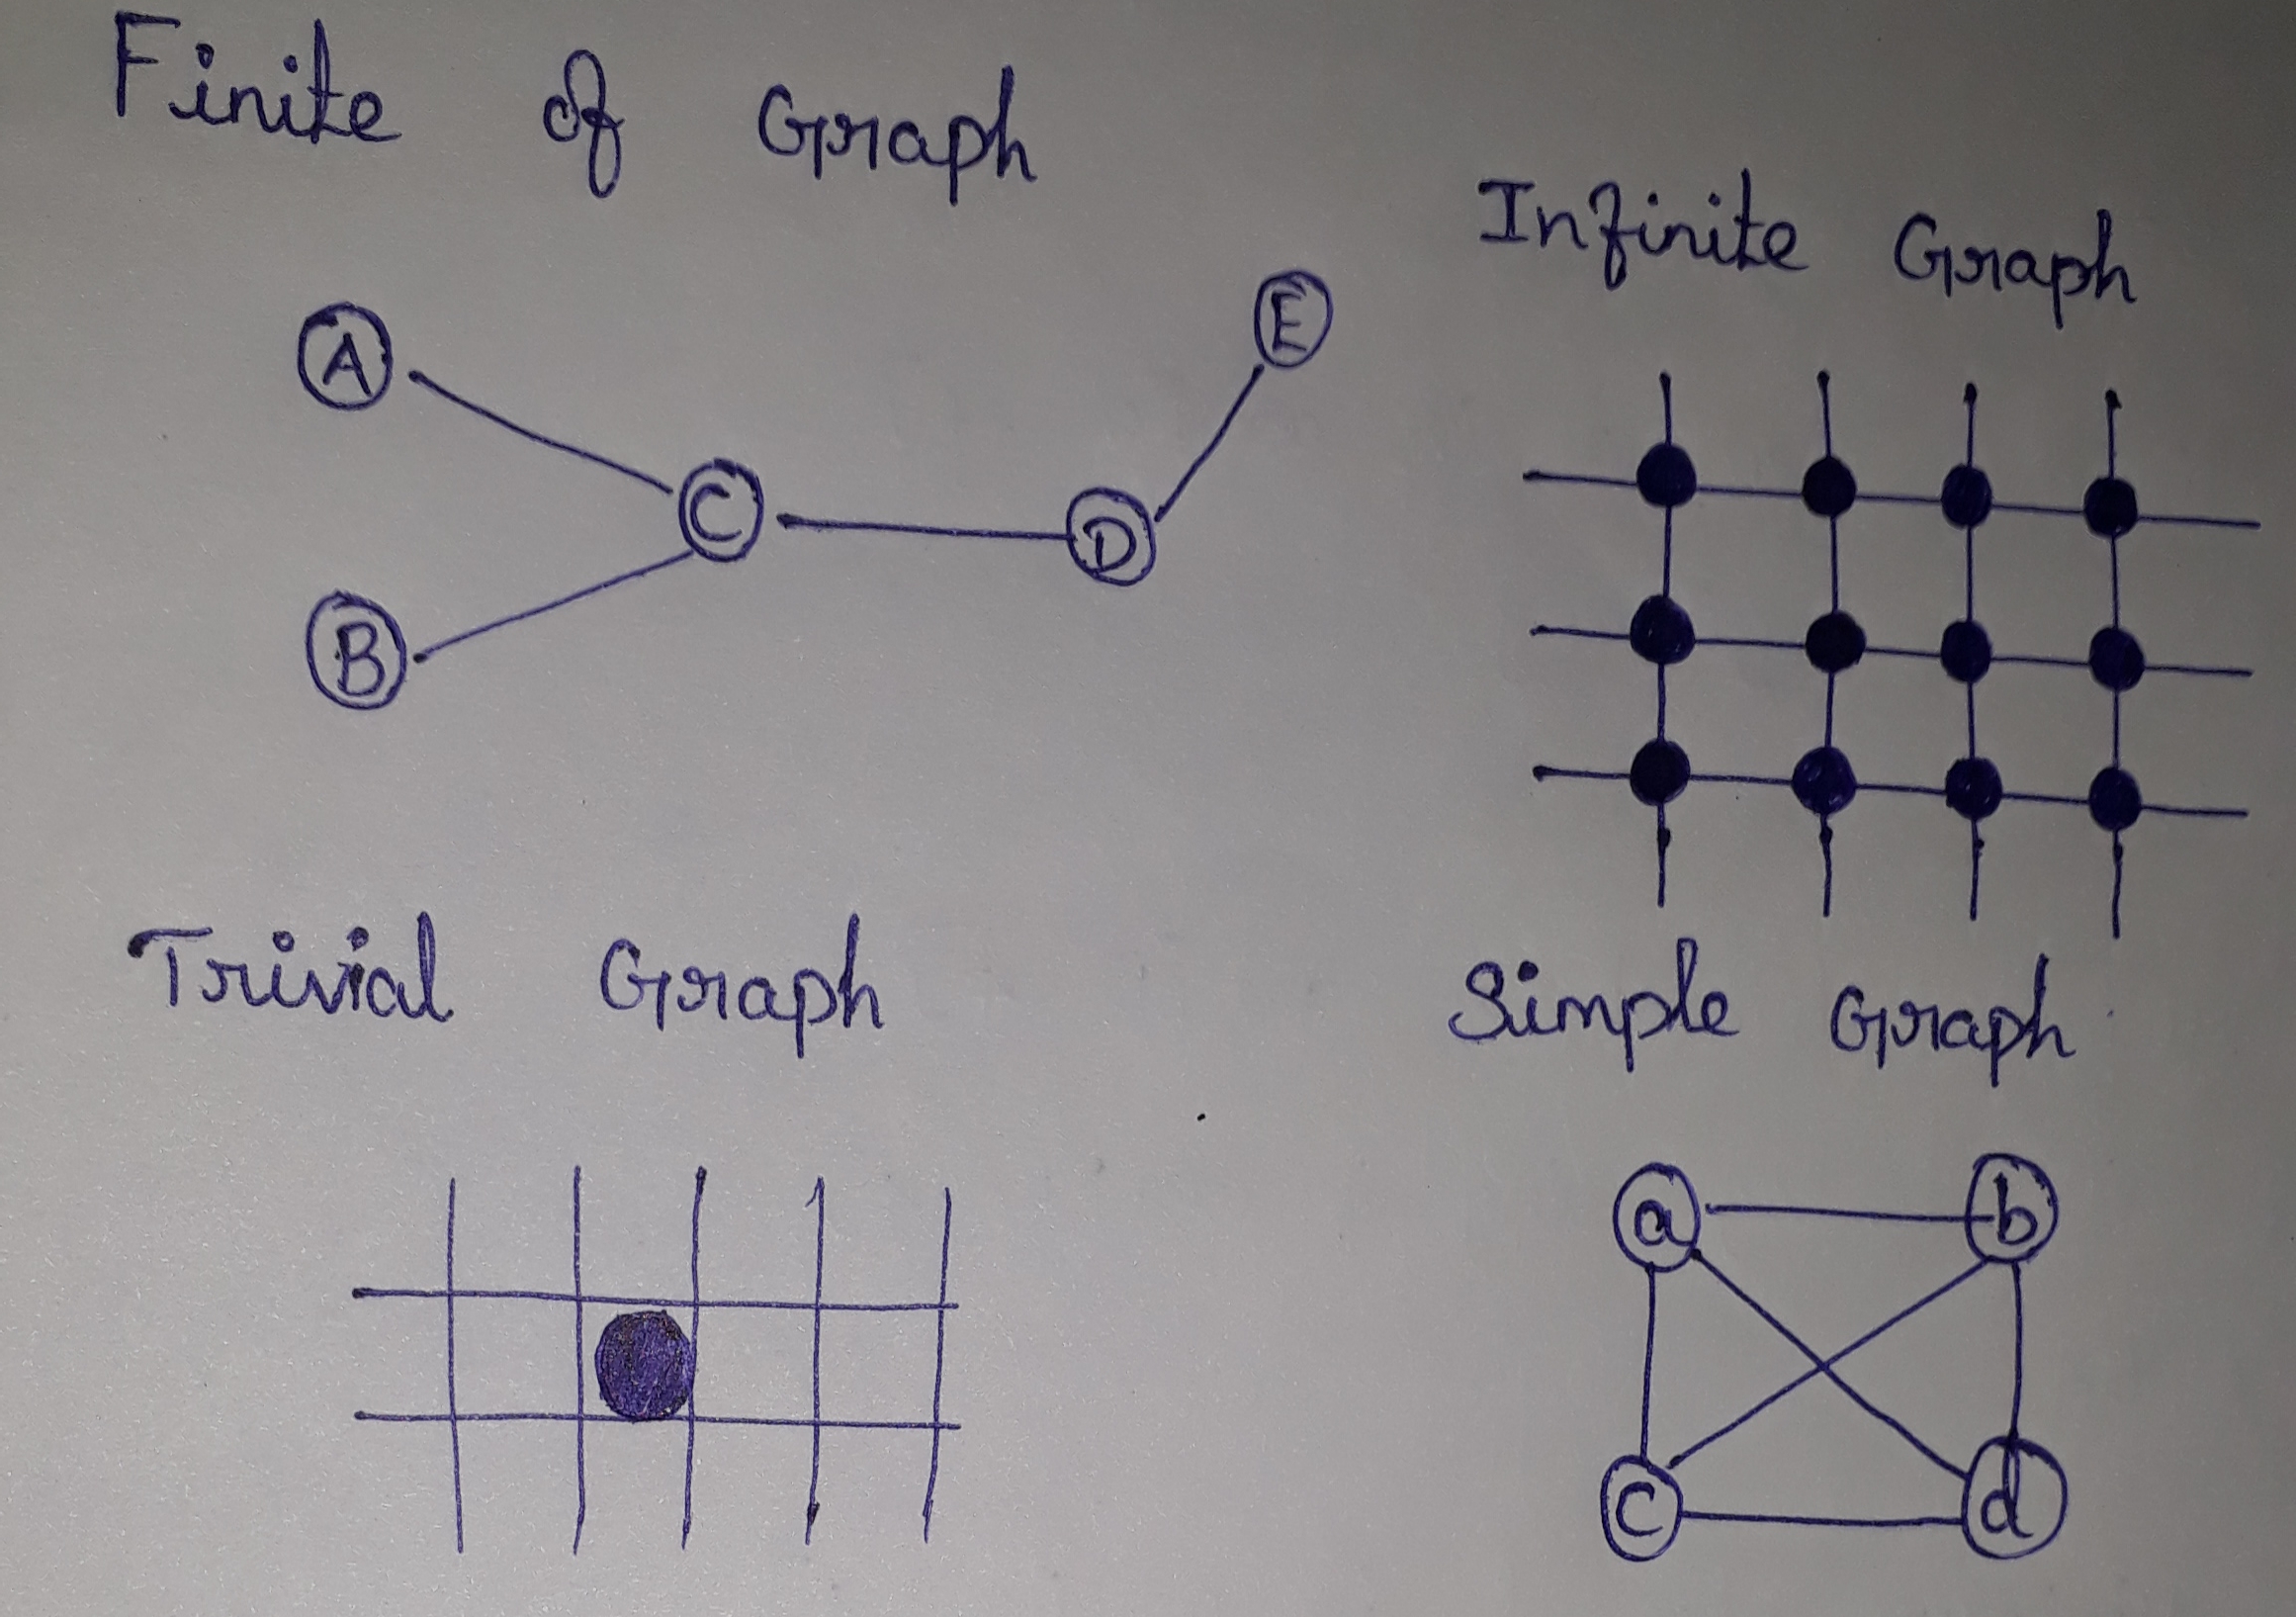 Finite of Graph
Infinite Graph
A
E
C
D
B
Trivial Graph
Simple Graph
a b
c d